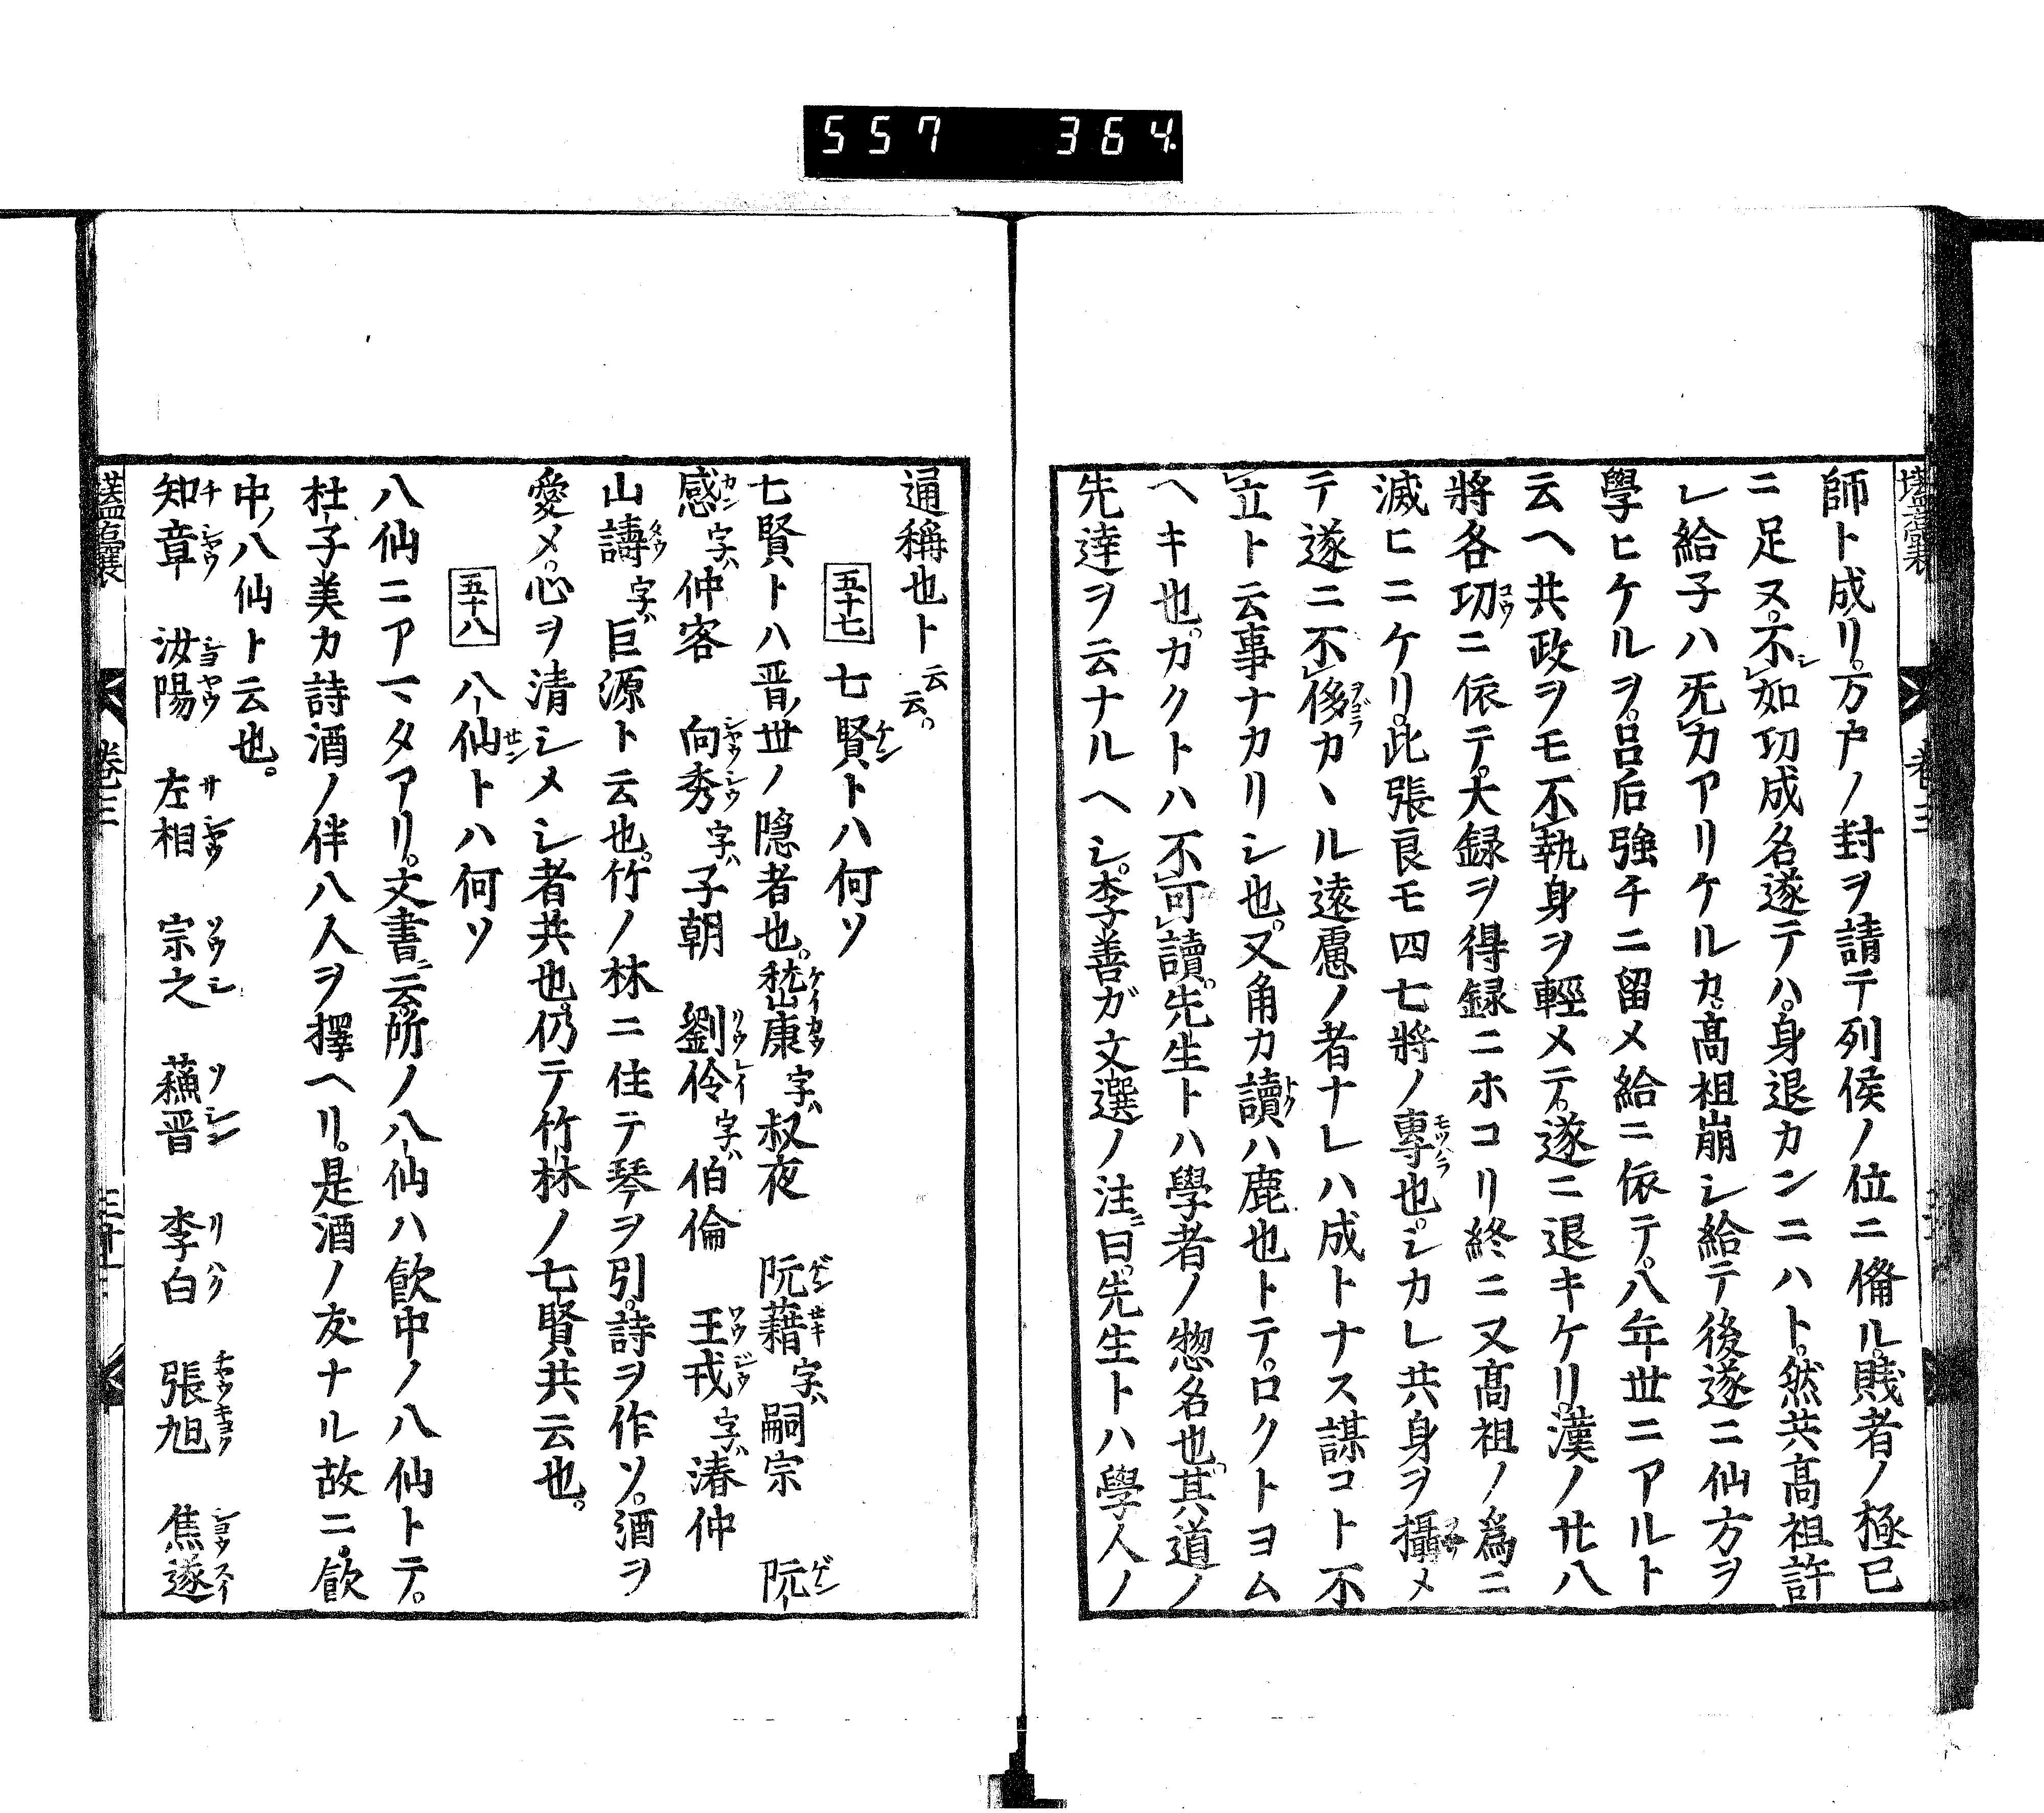 557 364
師ト成リ。万戸ノ封ヲ請テ列侯ノ位ニ俻ル。賎者ノ極已
ニ足ヌ。不シ如功成名遂テハ。身退カンニハト。然共髙祖許
レ給子ハ无力アリケルカ。髙祖崩シ給テ後遂ニ仙方ヲ
學ヒケルヲ。呂后強チニ留メ給ニ依テ。八年世ニアルト
云ヘ共政ヲモ不執身ヲ輕メテ。遂ニ退キケリ。漢ノ廿八
將各功コウニ依テ。大録ヲ得録ニホコリ終ニ又髙祖ノ爲ニ
滅ヒニケリ。此張良モ四七將ノ專モツハラ也。シカレ共身ヲ攝メ
テ遂ニ不侈ヲゴラカヽル遠慮ノ者ナレハ成トナス謀コト不
立ト云事ナカリシ也。又角カ讀トクハ鹿也トテ。ロクトヨム
ヘキ也。カクトハ不可讀。先生トハ學者ノ惣名也。其道ノ
先達ヲ云ナルヘシ。李善ガ文選ノ注ニ曰。先生トハ學人ノ
通稱也ト云云。
五十七 七賢ケントハ何ソ
七賢トハ晋ノ世ノ隠者也。嵇康ケイカウ字ハ叔夜 阮藉ゲンセキ字ハ嗣宗 阮ゲン
感カン字ハ仲客 向秀シヤウシウ字ハ子朝 劉伶リウレイ字ハ伯倫 王戎ワウジウ字ハ濬仲
山譸タウ字ハ巨源ト云也。竹ノ林ニ住テ琴ヲ引。詩ヲ作ソ。酒ヲ
愛メ。心ヲ清シメシ者共也。仍テ竹林ノ七賢共云也。
五十八 八仙センハ何ソ
八仙ニアマタアリ。文書ニ云所ノ八仙ハ飮中ノ八仙トテ。
杜子美カ詩酒ノ伴八人ヲ擇ヘリ。是酒ノ友ナル故ニ。飮
中ノ八仙ト云也。
知章チシヤウ 汝陽ジヨヤウ 左相サシヤウ 宗之ソウシ 蘓晋ソシン 李白リハク 張旭チヤウキヨク 焦遂シヨウスイ